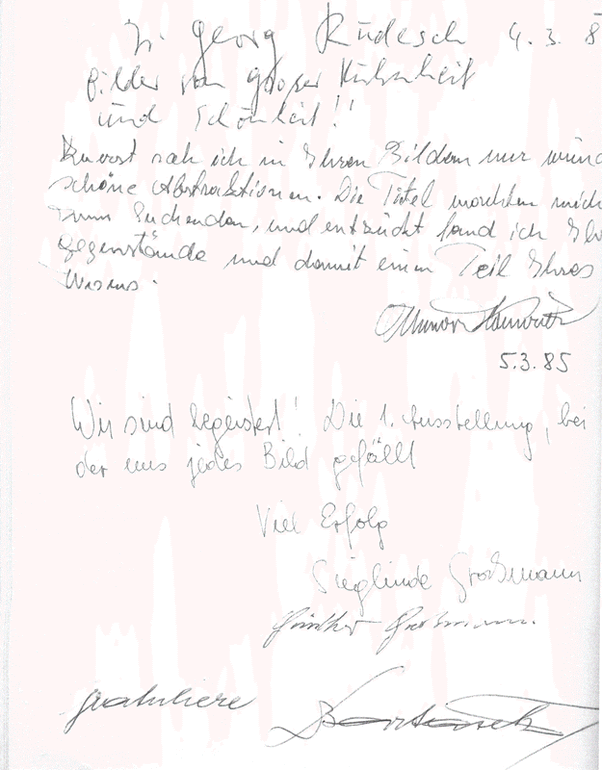 Georg Rudesch 4.3.8
Bilder von großer Kühnheit
und Schönheit!!
Zuerst sah ich in Ihren Bildern nur wund
schöne Abstraktionen. Die Titel machten mich
zum Suchenden, und entzückt fand ich Ihr
Gegenstände und damit einen Teil Ihres
Wesens.
5.3.85
Wir sind begeistert! Die 1. Ausstellung, bei
der uns jedes Bild gefällt
Viel Erfolg
Sieglinde Großmann
Günther Großmann.
gratuliere